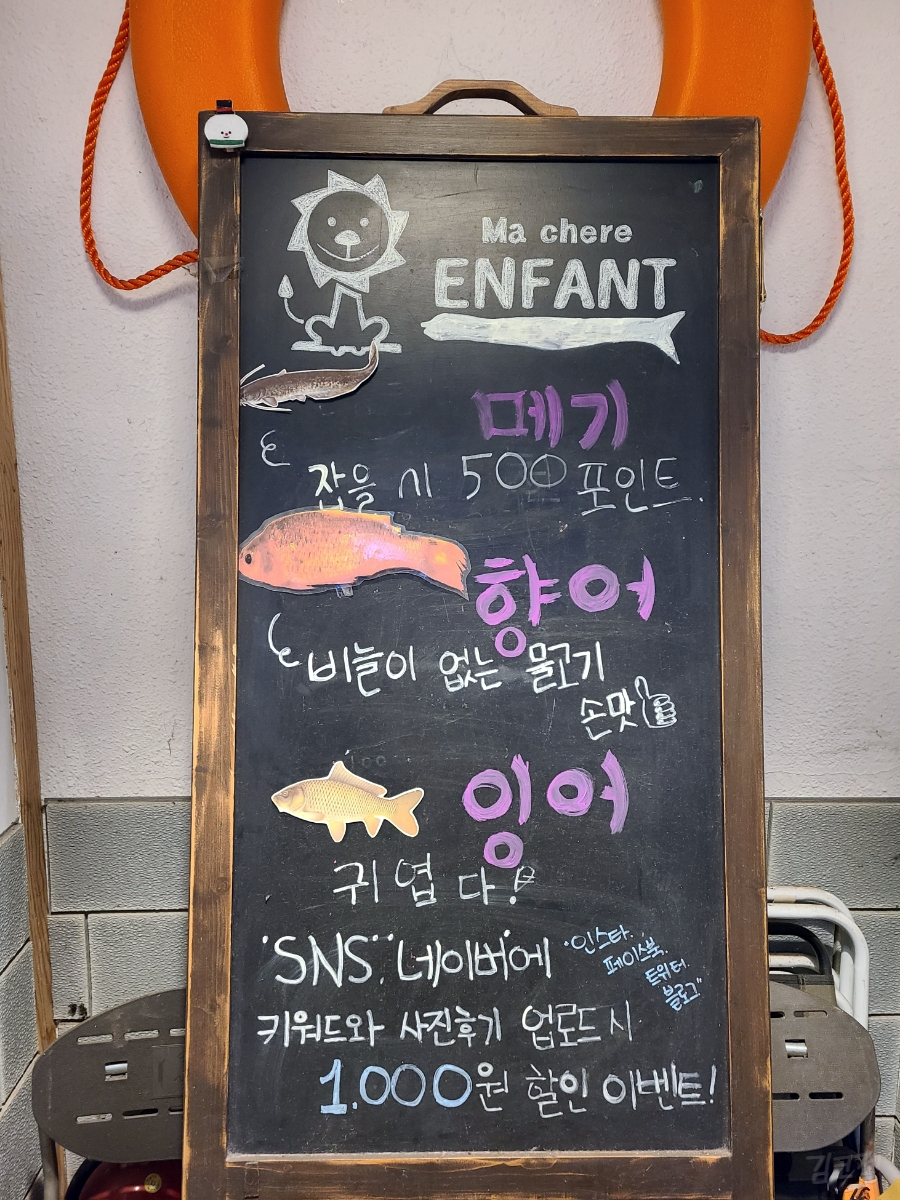 Ma chere
ENFANT
메기
잡을 시 500 포인트.
향어
비늘이 없는 물고기
손맛
잉어
귀엽다!
'SNS' '네이버'에
"인스타.
페이스북.
트위터.
블로그"
키워드와 사진후기 업로드시
1.000원 할인 이벤트!